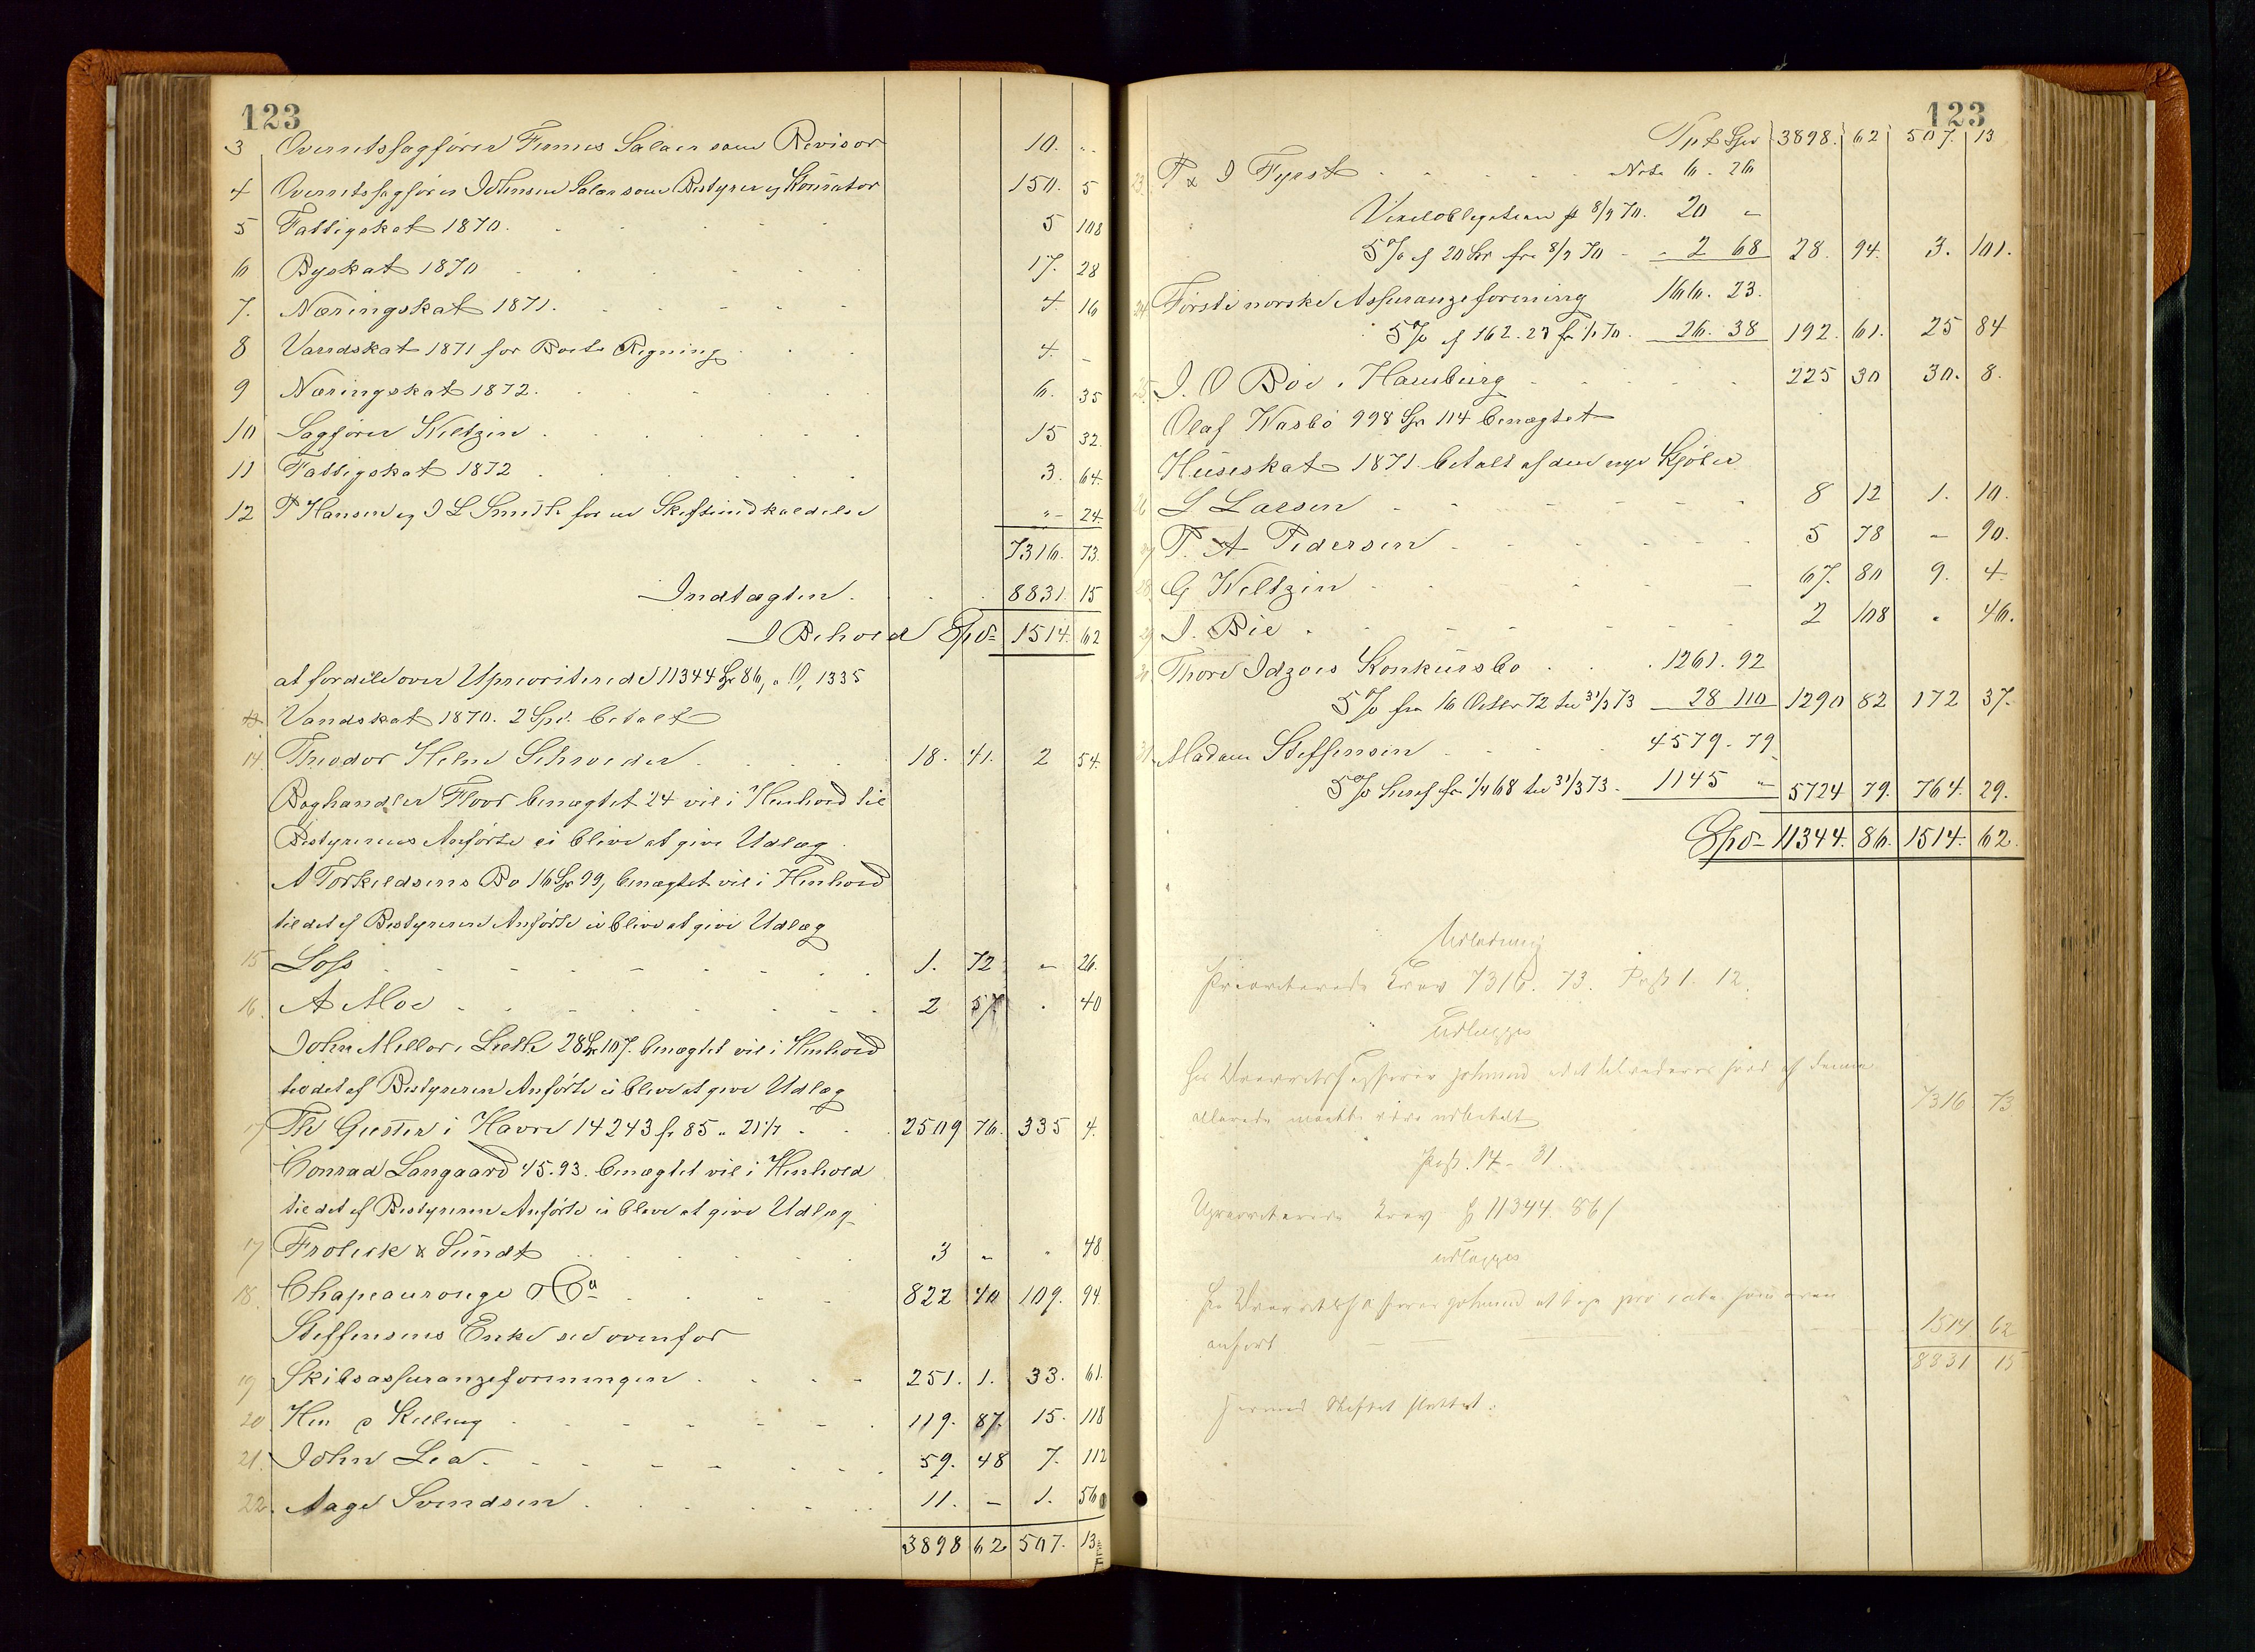 123
3 Overretssagfører Salær som Revisor 10. "
4 Overretssagfører Johnsen Salær som Bestyrer og Kurator 150. 5
5 Fattigskat 1870. 5 108
6 Byskat 1870 17. 28
7. Næringskat 1871. 4. 16
8 Vandskat 1871 for Boets Regning 4. –
9 Næringskat 1872. 6. 35
10 Sagfører Weltzin 15 32.
11 Fattigskat 1872 3. 64.
12 P Hansen og I L Smith for en Skifteindkaldelse "– 24.
7316. 73.
Indtægten. 8831. 15
I Behold Spd 1514. 62
at fordele over Uprioriterede 11344 Sp 86, 1335
13 Vandskat 1870. 2 Spd. betalt
14. Theodor Helm Schroeder 18. 41. 2 54.
Boghandler Floor benægtet 24 vil i Henhold til
Bestyrerens Anførte ei blive at give Udlæg
A Torkeldsens Bo 16 Sp 99, benægtet vil i Henhold
til det af Bestyreren Anførte ei blive at give Udlæg
15 Loss 1. 72 – 26.
16. A Moe 2 57 . 40
John Mellor, Leeth 28 Sp 107. benægtet vil i Henhold
til det af Bestyreren Anførte ei blive at give Udlæg
17 Th Guester i Havre 14243 fr 85 2509 76. 335 4.
Conrad Langaard 45.93. benægtet vil i Henhold
til det af Bestyreren Anførte ei blive at give Udlæg
17 Frolich & Sundt 3 – " 48
18. Chapeaurouge & Co 822 40 109. 94.
Steffensens Enke se ovenfor
19 Skibsassuranzeforeningen 251. 1. 33. 61.
20 Hen Kielling 119. 87. 15. 118
21. John Lea 59. 48 7. 112
22. Aage Svendsen 11. – 1. 56
3898 62 507. 13
123
3898. 62 507. 13
23 P & I Fyrst Nota 6. 26
Vexelobligation 8/9 70. 20 –
5% af 20 Spd fra 8/9 70 – 2 68 28. 94. 3. 101.
24 Første norske Assuranzeforening 166. 23.
5% af 162.23 fr 1/1 70. 26. 38 192. 61. 25 84
25. I. O Böe, Hamburg 225 30 30. 8.
Olaf Wasbö 998 Sp 114 benægtet
Huseskat 1871 betalt af den nye Kjøber
26 L Larsen 8 12 1. 10.
27 P. A Pedersen 5 78 – 90.
28 G Weltzin 67. 80 9. 4
29 I. Bie 2 108 . 46.
30 Thore Idzoes Konkursbo 1261. 92
5% fra 16 Octbr 72 til 31/3 73 28 110 1290 82 172 37.
31. Madam Steffensen 4579. 79
5% fra 1/4 68 til 31/3 73. 1145 " 5724 79. 764. 29.
Spd 11344. 86. 1514. 62.
Udlodning
Prioriterede Krav 7316. 73. Post 1. 12.
Udlægges
Hr Overretssagfører Johnsen af denne
allerede udbetalt 7316 73
Post. 14 – 31.
Uprioriterede Krav 11344. 86
udlægges
Hr Overretssagfører Johnsen pro rata som oven
anført 1514 62
8831 15
Hermed Skiftet sluttet.